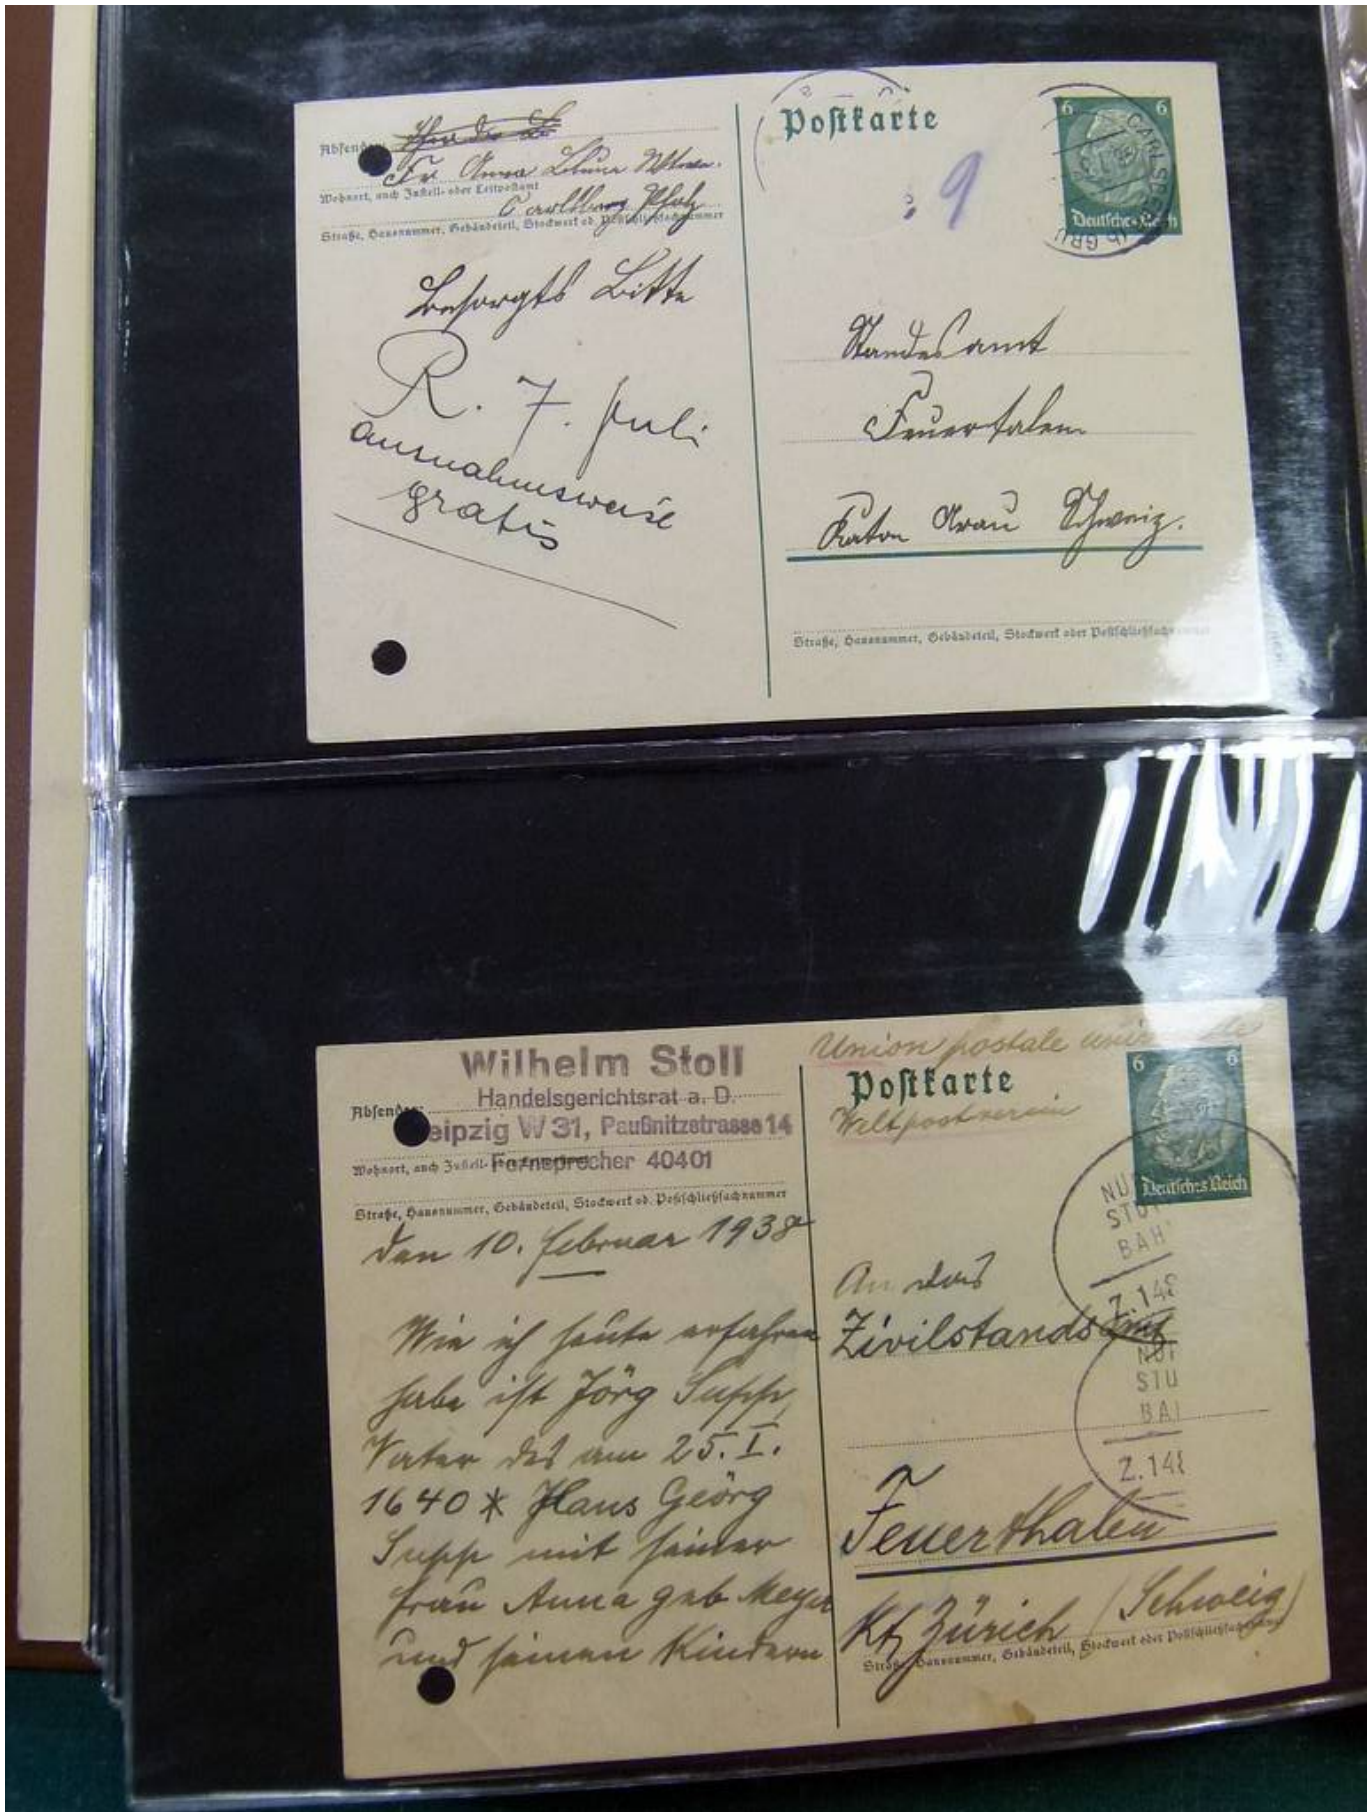 Postkarte
6 6
Deutsches Reich
CARLSBERG
Absender:
Fr Anna
Wohnort, auch Zustell- oder Leitpostamt
Carlsberg Pfalz
Straße, Hausnummer, Gebäudeteil, Stockwerk od. Postschließfachnummer
9
besorgts Bitte
R. 7. Juli
ausnahmsweise
gratis
Standesamt
Feuertalen
Katon Arau Schweiz.
Straße, Hausnummer, Gebäudeteil, Stockwerk oder Postschließfachnummer
Wilhelm Stoll
Handelsgerichtsrat a. D.
Absender:
Leipzig W 31, Paußnitzstrasse 14
Wohnort, auch Zustell-
Fernsprecher 40401
Straße, Hausnummer, Gebäudeteil, Stockwerk od. Postschließfachnummer
den 10. Februar 1938
Wie ich heute erfahren
habe ist Jörg Supp,
Vater des am 25. I.
1640 * Hans Georg
Supp mit seiner
Frau Anna geb Meyer
und seinen Kindern
Union postale
Postkarte
Weltpostverein
6 6
Deutsches Reich
NÜ
STU
BAH
Z.148
An das
Zivilstandsamt
STU
BA
Z.148
Feuerthalen
Kt. Zürich (Schweiz)
Straße, Hausnummer, Gebäudeteil, Stockwerk oder Postschließfachnummer